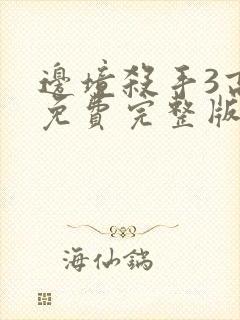 邊境殺手3高
免費完整版
海仙鎬